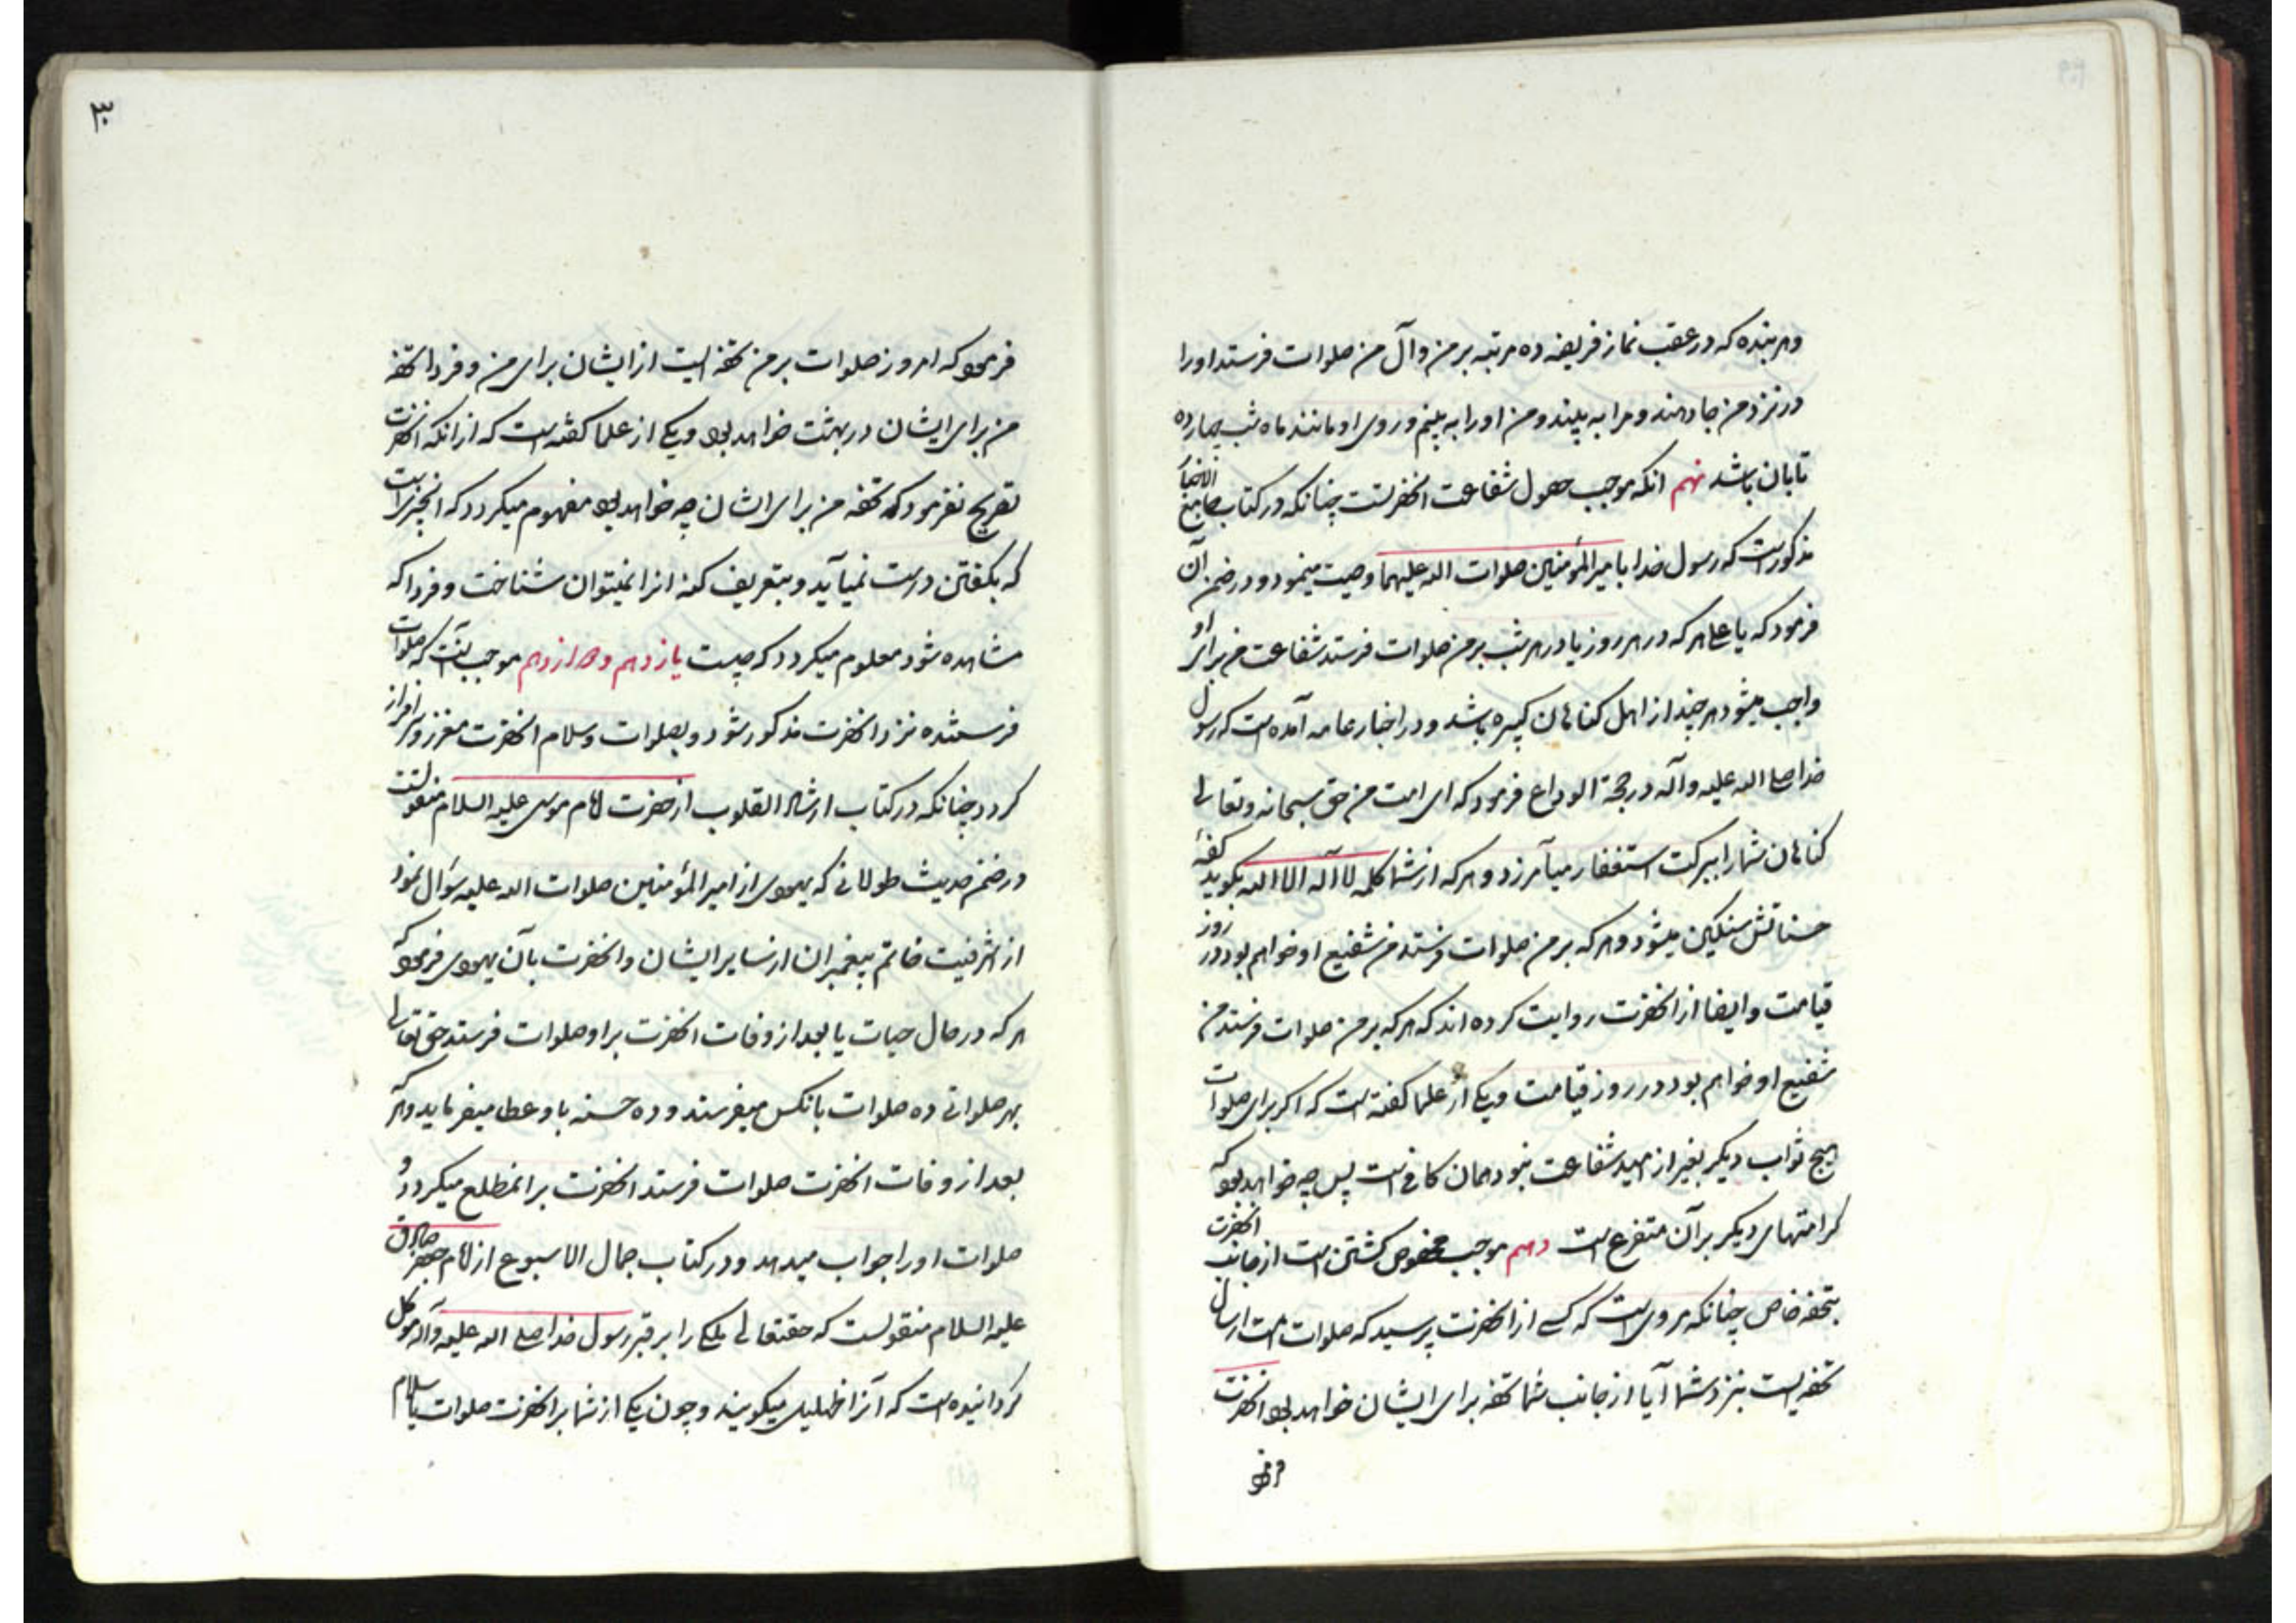 وهر بنده که در عقب نماز فریضه ده مرتبه بر من وآل من صلوات فرستد اورا
در نزد من جا دهند ومرا به بیند ومن اورا به بینم وروی او مانند ماه شب چهارده
تابان باشد نهم انکه موجب حصول شفاعت انحضرتست چنانکه در کتاب جامع الاخبار
مذکورست که رسول خدا بامیر المؤمنین صلوات الله علیهما وصیت مینمود ودر ضمن آن
فرمود که یا علی هر که در هر روز یا در هر شب بر من صلوات فرستد شفاعت من برای او
واجب میشود هر چند از اهل کناهان کبیره باشد ودر اخبار عامه آمده است که رسول
خدا صلی الله علیه وآله در حجة الوداع فرمود که ای امت من حق سبحانه وتعالی
کناهان شمارا ببرکت استغفار میآمرزد وهر که از شما کلمه لا آله الا الله بکوید کفهٔ
حسناتش سنکین میشود وهر که بر من صلوات فرستد من شفیع او خواهم بود در روز
قیامت وایضا از انحضرت روایت کرده اند که هر که بر من صلوات فرستد من
شفیع او خواهم بود در روز قیامت ویکی از علما کفته است که اکر برای صلوات
هیچ ثواب دیکر بغیر از امید شفاعت نبود همان کافی است پس چه خواهد بود که
کرامتهای دیکر برآن متفرع است دهم موجب مخصوص کشتن است از جانب انحضرت
بتحفه خاص چنانکه مرویست که کسی از انحضرت پرسید که صلوات امت ارسال
تحفه ایست بنزد شما آیا از جانب شما تحفه برای ایشان خواهد بود انحضرت
فرمود
۳۰
فرمود که امروز صلوات بر من تحفه ایست از ایشان برای من وفردا تحفه
من برای ایشان در بهشت خواهد بود ویکی از علما کفته است که از انکه انحضرت
تصریح نفرمود که تحفه من برای ایشان چه خواهد بود مفهوم میکردد که انچیزیست
که بکفتن درست نمیآید وبتعریف کنه انرا نمیتوان شناخت وفردا که
مشاهده شود معلوم میکردد که چیست یازدهم ودوازدهم موجب آنست که صلوات
فرستنده نزد انحضرت مذکور شود وبصلوات وسلام انحضرت معزز وسرافراز
کردد چنانکه در کتاب ارشاد القلوب از حضرت امام موسی علیه السلام منقولست
در ضمن حدیث طولانی که یهودی از امیر المؤمنین صلوات الله علیه سؤال نمود
از اشرفیت خاتم پیغمبران از سایر ایشان وانحضرت بآن یهودی فرمود که
هر که در حال حیات یا بعد از وفات انحضرت براو صلوات فرستد حق تعالی
بهر صلواتی ده صلوات بانکس میفرستد وده حسنه باو عطا میفرماید وهر که
بعد از وفات انحضرت صلوات فرستد انحضرت بران مطلع میکردد و
صلوات اورا جواب میدهد ودر کتاب جمال الاسبوع از امام جعفر صادق
علیه السلام منقولست که حقتعالی ملکی را بر قبر رسول خدا صلی الله علیه وآله موکل
کردانیده است که آنرا ظهلیل میکویند وچون یکی از شما بر انحضرت صلوات یا سلام